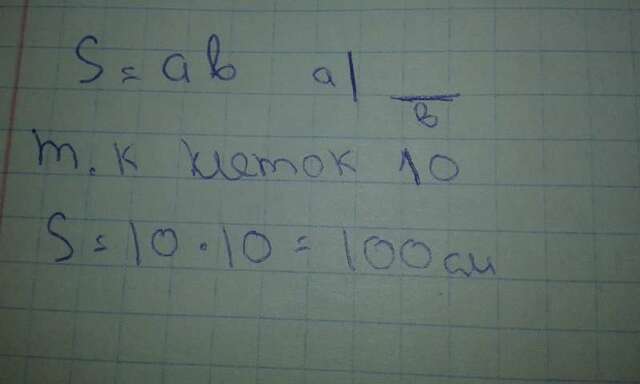 S = ab a| __ b
т. к клеток 10
S = 10 · 10 = 100 см